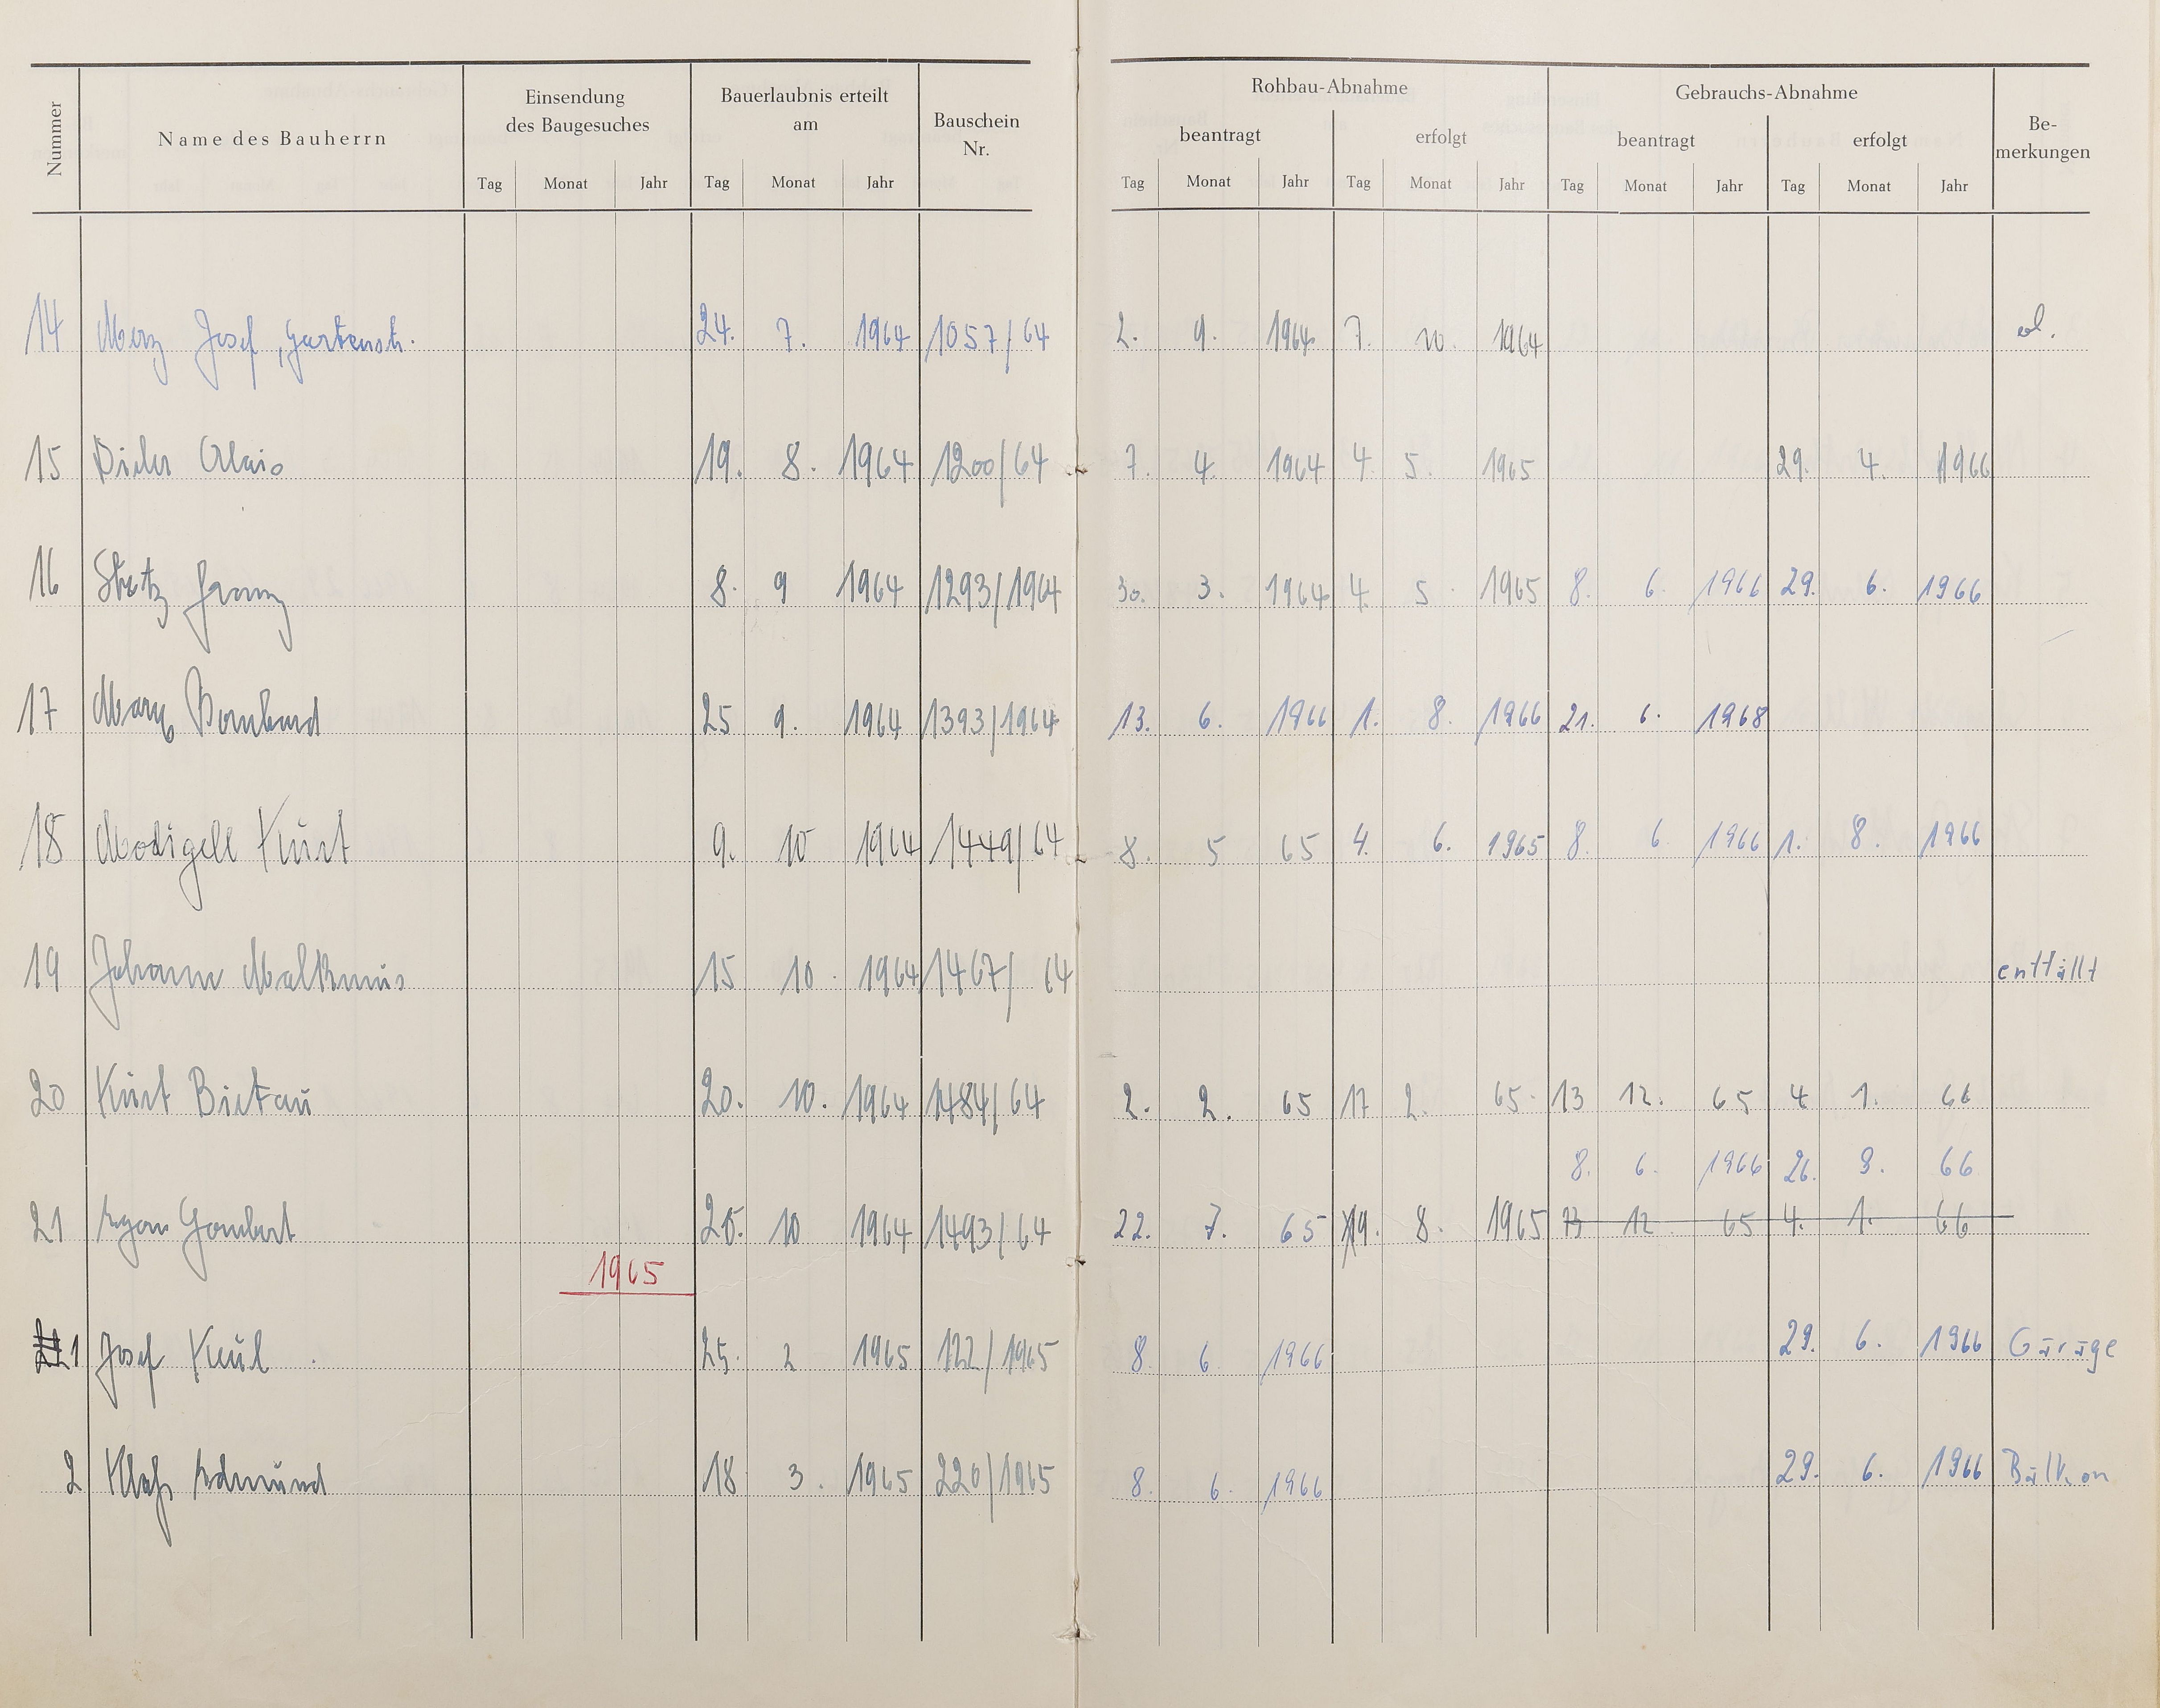 Nummer Name des Bauherrn Einsendung des Baugesuches Bauerlaubnis erteilt am Bauschein Nr. Rohbau-Abnahme Gebrauchs-Abnahme Be-merkungen
beantragt erfolgt beantragt erfolgt
Tag Monat Jahr Tag Monat Jahr Tag Monat Jahr Tag Monat Jahr Tag Monat Jahr Tag Monat Jahr
14 Merz Josef, Gartenstr. 24. 7. 1964 1057/64 2. 9. 1964 7. 10. 1964
15 Alois 19. 8. 1964 1200/64 7. 4. 1964 4. 5. 1965 29. 4. 1966
16 Franz 8. 9 1964 1293/1964 30. 3. 1964 4. 5. 1965 8. 6. 1966 29. 6. 1966
17 25 9. 1964 1393/1964 13. 6. 1966 1. 8. 1966 21. 6. 1968
18 Modigell Kurt 9. 10 1964 1449/64 8. 5 65 4. 6. 1965 8. 6 1966 1. 8. 1966
19 Johann Malkmus 15 10. 1964 1467/64 entfällt
20 Kurt Bietau 20. 10. 1964 1484/64 2. 2. 65 17 2. 65. 13 12. 65 4 1. 66
8. 6. 1966 26. 9. 66
21 Egon Gombert 20. 10 1964 1493/64 22. 7. 65 19. 8. 1965 13 12 65 4. 1. 66
1965
1 Josef Keul 25. 2 1965 122/1965 8. 6 1966 29. 6. 1966 Garage
2 Edmund 18 3. 1965 220/1965 8. 6. 1966 29. 6. 1966 Balkon